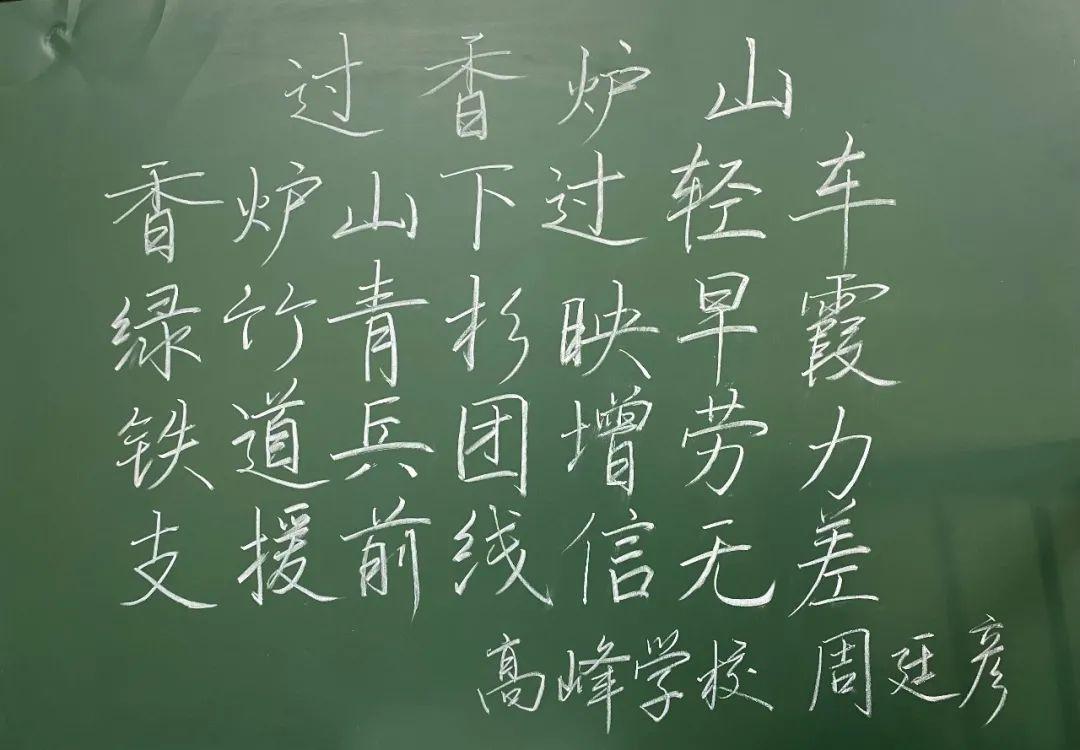 过香炉山
香炉山下过轻车
绿竹青杉映早霞
铁道兵团增劳力
支援前线信无差
高峰学校 周廷彦